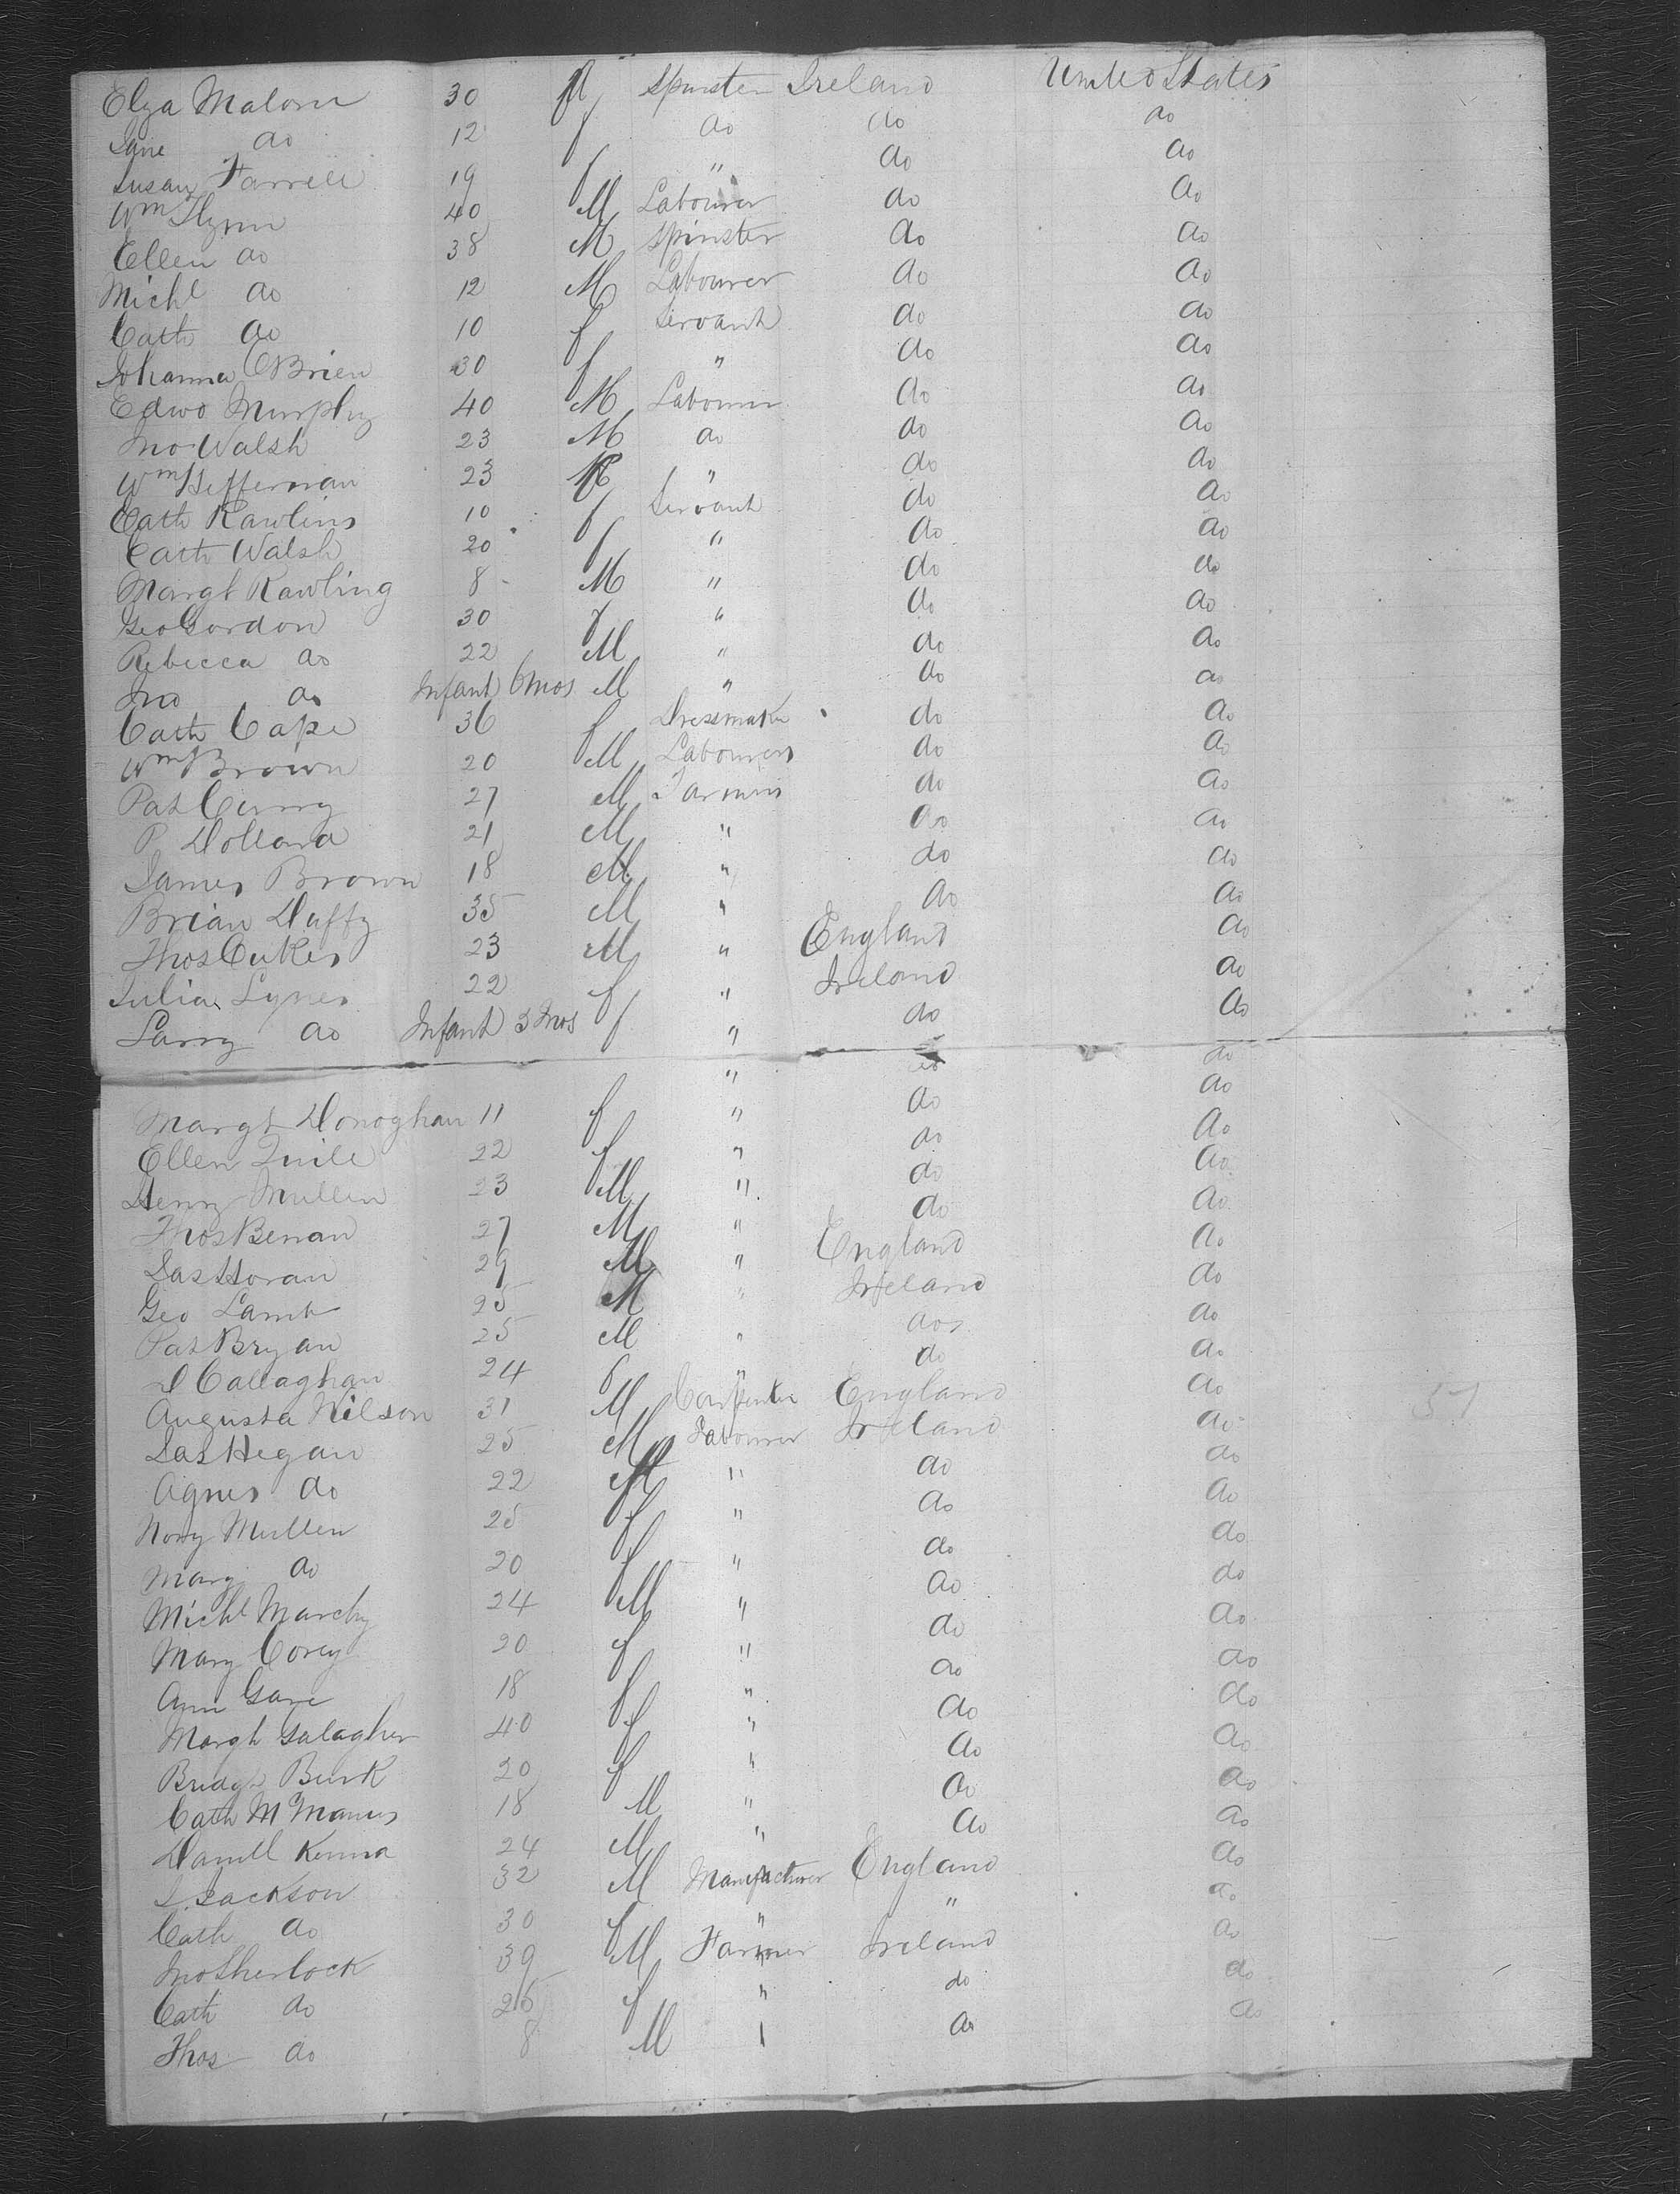 Elza Malone 30 f Spinster Ireland United States
Jane do 12 f do do do
Susan Farrell 19 f " do do
Wm Flynn 40 M Labourer do do
Ellen do 38 M Spinster do do
Michl do 12 M Labourer do do
Cath do 10 f Servant do do
Johanna OBrien 30 f " do do
Edwd Murphy 40 M Labourer do do
Jno Walsh 23 M do do do
Wm Heffernan 23 M " do do
Cath Rawlins 10 f Servant do do
Cath Walsh 20 f " do do
Margt Rawling 8 M " do do
Geo Gordon 30 f " do do
Rebecca do 22 M " do do
Jno do Infant 6 mos M " do do
Cath Cape 36 f Dressmaker do do
Wm Brown 20 M Labourers do do
Pat Curry 27 M Farmers do do
P Holland 21 M " do do
James Brown 18 M " do do
Brian Duffy 35 M " do do
Thos 23 M " England do
Julia Lynes 22 f " Ireland do
Larry do Infant 3 mos f " do do
" do do
Margt Donoghan 11 f " do do
Ellen Quill 22 f " do do
Henry Mullen 23 M " do do
Thos Benan 27 M " do do
Jas Horan 29 M " England do
Geo Lamb 25 M " Ireland do
Pat Bryan 25 M " do do
D Callaghan 24 f " do do
Augusta Nilson 31 M Carpenter England do
Jas Hegan 25 M Labourer Ireland do
Agnes do 22 M " do do
Nory Mullen 25 f " do do
Mary do 20 f " do do
Michl 24 M " do do
Mary Corey 20 f " do do
Ann Gane 18 f " do do
Margt Galagher 40 f " do do
Bridgt Burk 20 f " do do
Cath McManus 18 M " do do
Daniell Kenna 24 M " do do
J. Jackson 32 M Manufacturer England do
Cath do 30 f " " do
Jno Sherlock 39 M Farmer Ireland do
Cath do 25 f " do do
Thos do 8 M " do do
57